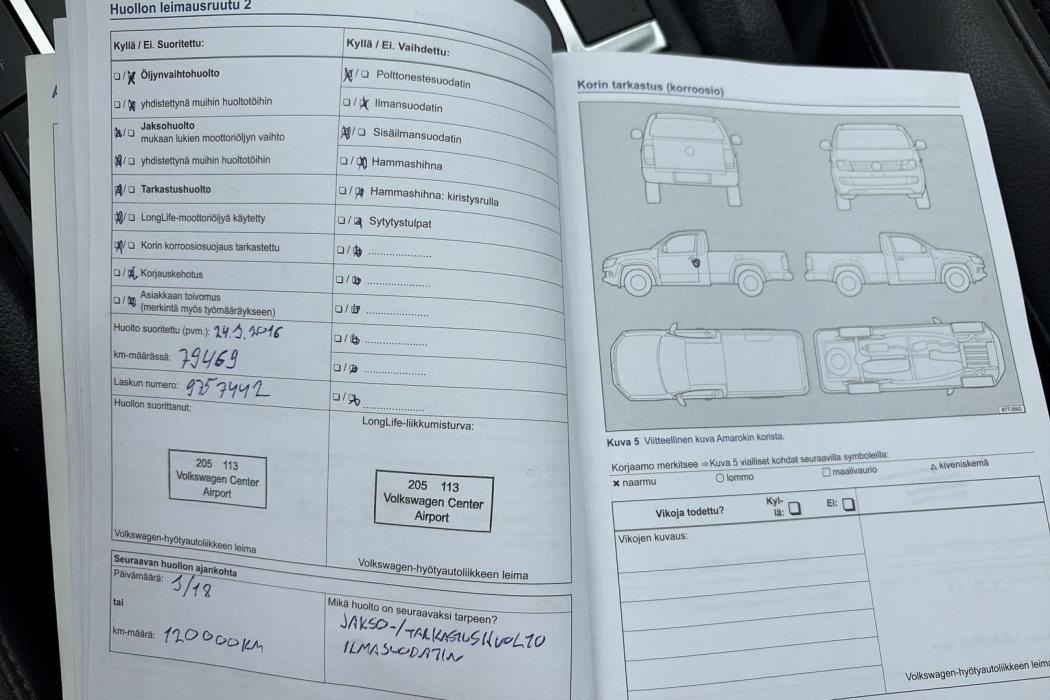 Huollon leimausruutu 2
Kyllä / Ei. Suoritettu:
Öljynvaihtohuolto
yhdistettynä muihin huoltotöihin
Jaksohuolto
mukaan lukien moottoriöljyn vaihto
yhdistettynä muihin huoltotöihin
Tarkastushuolto
LongLife-moottoriöljyä käytetty
Korin korroosiosuojaus tarkastettu
Korjauskehotus
Asiakkaan toivomus
(merkintä myös työmääräykseen)
Huolto suoritettu (pvm.): 24.5.2016
km-määrässä: 79469
Laskun numero: 9757442
Huollon suorittanut:
205 113
Volkswagen Center
Airport
Volkswagen-hyötyautoliikkeen leima
Kyllä / Ei. Vaihdettu:
Polttonestesuodatin
Ilmansuodatin
Sisäilmansuodatin
Hammashihna
Hammashihna: kiristysrulla
Sytytystulpat
LongLife-liikkumisturva:
205 113
Volkswagen Center
Airport
Volkswagen-hyötyautoliikkeen leima
Seuraavan huollon ajankohta
Päivämäärä: 5/18
tai
km-määrä: 120000KM
Mikä huolto on seuraavaksi tarpeen?
JAKSO-/TARKASTUSHUOLTO
ILMASUODATIN
Korin tarkastus (korroosio)
Kuva 5 Viitteellinen kuva Amarokin korista.
Korjaamo merkitsee ⇒ Kuva 5 vialliset kohdat seuraavilla symboleilla:
✖ naarmu ○ lommo □ maalivaurio △ kiveniskemä
Vikoja todettu? Kyl-
lä: Ei:
Vikojen kuvaus:
Volkswagen-hyötyautoliikkeen leima